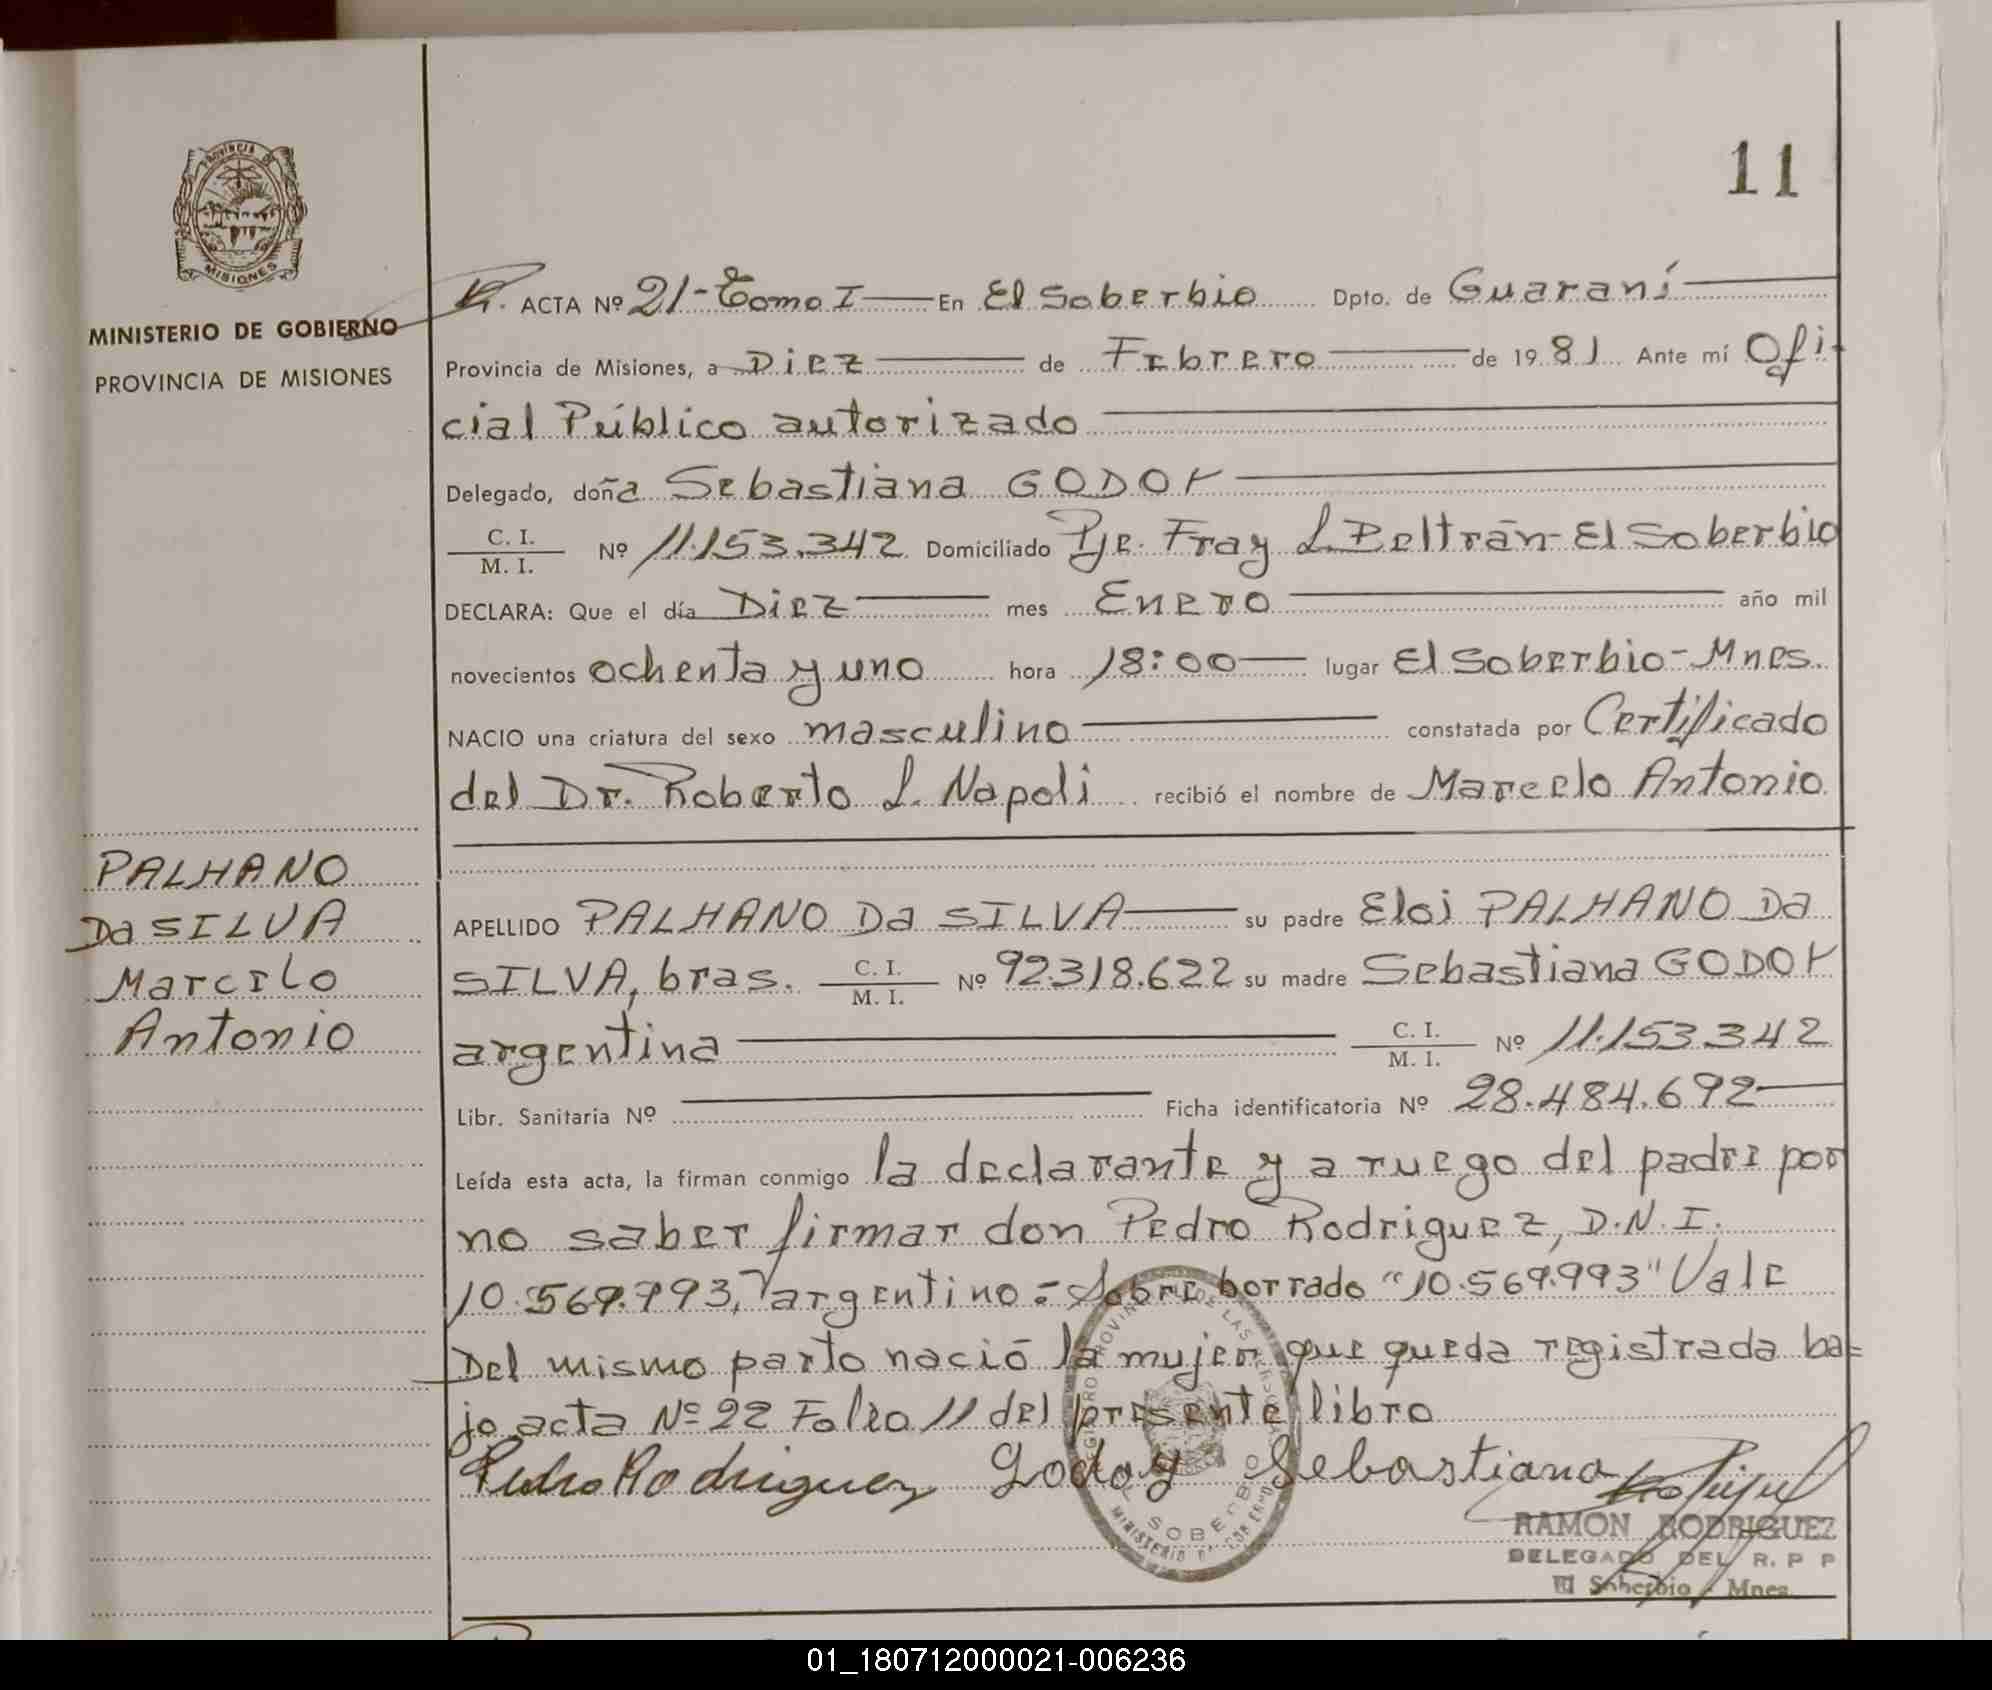 11
PROVINCIA DE
MISIONES
MINISTERIO DE GOBIERNO
PROVINCIA DE MISIONES
ACTA Nº 21-Tomo I En El Soberbio Dpto. de Guaraní
Provincia de Misiones, a Diez de Febrero de 1981 Ante mí Ofi-
cial Público autorizado
Delegado, doña Sebastiana GODOY
C. I. / M. I. Nº 11.153.342 Domiciliado Pje. Fray L. Beltrán-El Soberbio
DECLARA: Que el día Diez mes Enero año mil
novecientos ochenta y uno hora 18:00 lugar El Soberbio-Mnes.
NACIO una criatura del sexo masculino constatada por Certificado
del Dr. Roberto L. Napoli recibió el nombre de Marcelo Antonio
PALHANO
Da SILVA
Marcelo
Antonio
APELLIDO PALHANO Da SILVA su padre Eloi PALHANO Da
SILVA, bras. C. I. / M. I. Nº 92.318.622 su madre Sebastiana GODOY
argentina C. I. / M. I. Nº 11.153.342
Libr. Sanitaria Nº Ficha identificatoria Nº 28.484.692
Leída esta acta, la firman conmigo la declarante y a ruego del padre por
no saber firmar don Pedro Rodriguez, D.N.I.
10.569.993, argentino = Sobre borrado "10.569.993" Vale
Del mismo parto nació la mujer que queda registrada ba=
jo acta Nº 22 Folio 11 del presente libro
Pedro Rodriguez Godoy Sebastiana
RAMON RODRIGUEZ
DELEGADO DEL R. P P
El Soberbio - Mnes.
01_180712000021-006236